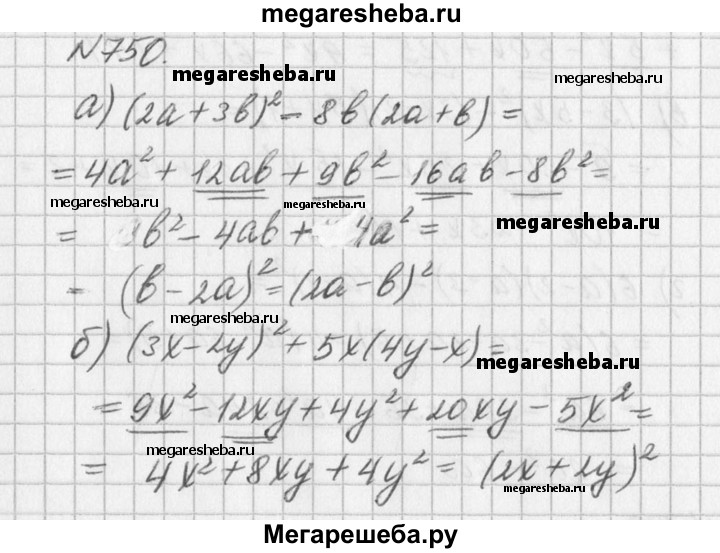 megaresheba.ru
N750.
megaresheba.ru
а) (2a+3b)²-8b(2a+b)=
=4a²+12ab+9b²-16ab-8b²=
megaresheba.ru megaresheba.ru megaresheba.ru
= b²-4ab+4a²= megaresheba.ru
= (b-2a)²=(2a-b)²
megaresheba.ru
б) (3x-2y)²+5x(4y-x)=
megaresheba.ru
=9x²-12xy+4y²+20xy-5x²=
megaresheba.ru
= 4x²+8xy+4y²= (2x+2y)²
megaresheba.ru
Мегарешеба.ру